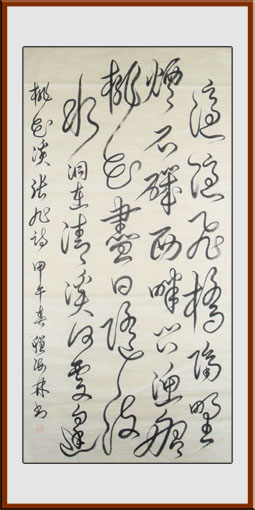 隐隐飞桥隔野
烟石矶西畔问渔船
桃花尽日随流
水洞在清溪何处边
桃花溪张旭诗甲午春程海林书